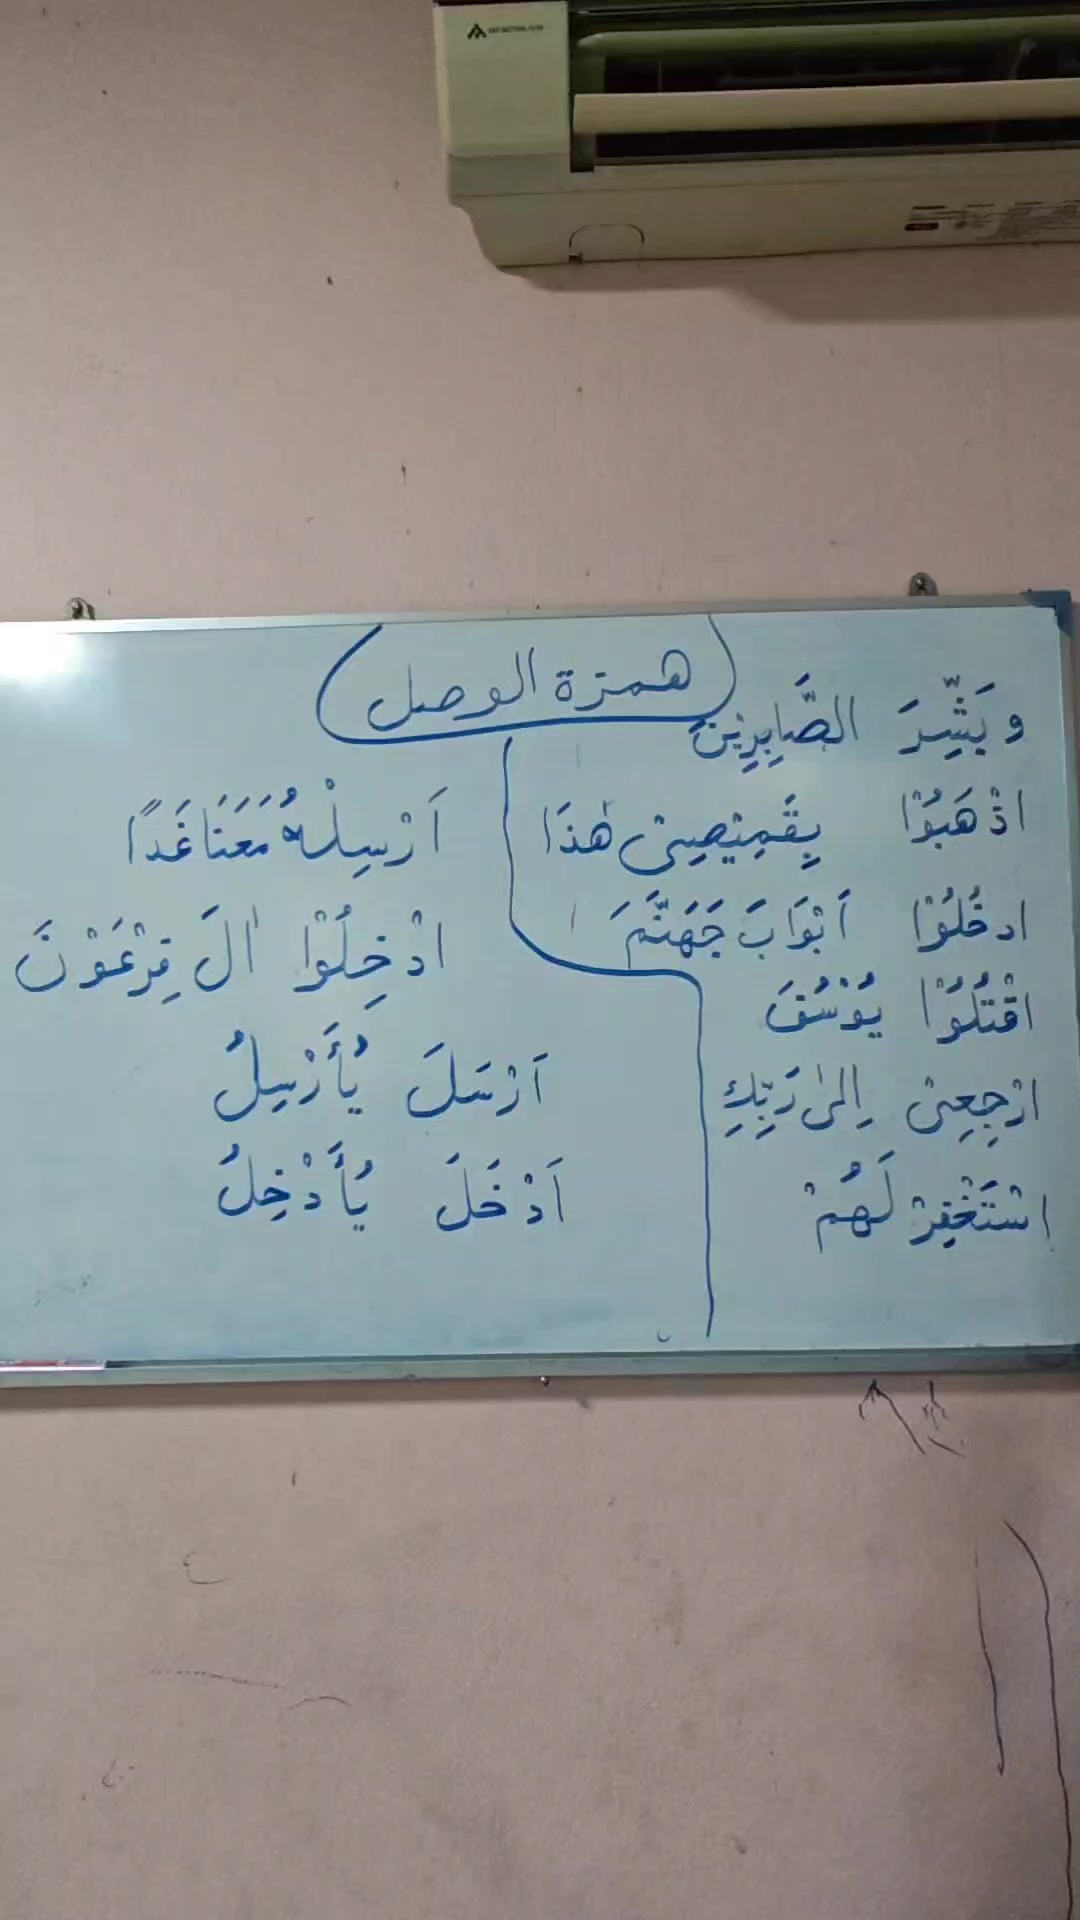 همزة الوصل
وَبَشِّرَ الصَّابِرِيْنَ
اذْهَبُوْا بِقَمِيْصِيْ هٰذَا
ادخُلُوْا اَبْوَابَ جَهَنَّمَ
اقْتُلُوْا يُوْسُفَ
ارْجِعِيْ اِلىٰ رَبِّكِ
اسْتَغْفِرْ لَهُمْ
اَرْسِلْهُ مَعَنَا غَدًا
ادْخِلُوْا اٰلَ فِرْعَوْنَ
اَرْسَلَ يُأَرْسِلُ
اَدْخَلَ يُأَدْخِلُ